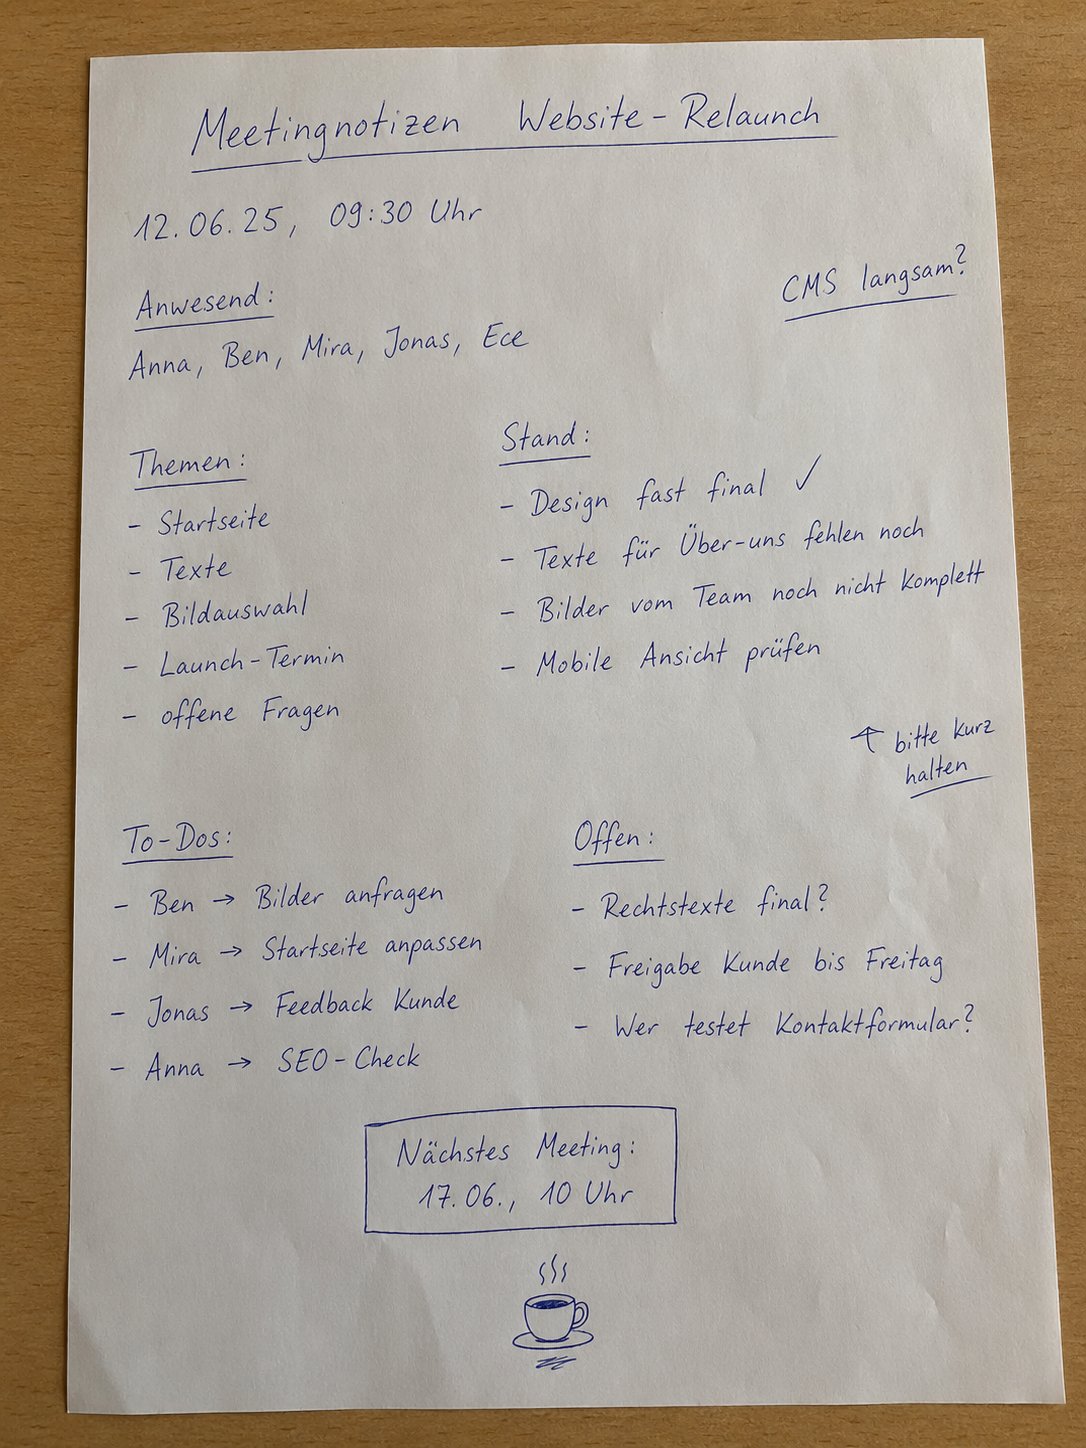 Meetingnotizen Website-Relaunch
12.06.25, 09:30 Uhr
CMS langsam?
Anwesend:
Anna, Ben, Mira, Jonas, Ece
Themen:
- Startseite
- Texte
- Bildauswahl
- Launch-Termin
- offene Fragen
Stand:
- Design fast final ✓
- Texte für Über-uns fehlen noch
- Bilder vom Team noch nicht komplett
- Mobile Ansicht prüfen
↑ bitte kurz
halten
To-Dos:
- Ben → Bilder anfragen
- Mira → Startseite anpassen
- Jonas → Feedback Kunde
- Anna → SEO-Check
Offen:
- Rechtstexte final?
- Freigabe Kunde bis Freitag
- Wer testet Kontaktformular?
Nächstes Meeting:
17.06., 10 Uhr